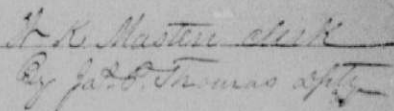 W K Masten clerk
By Jas. P. Thomas dpty